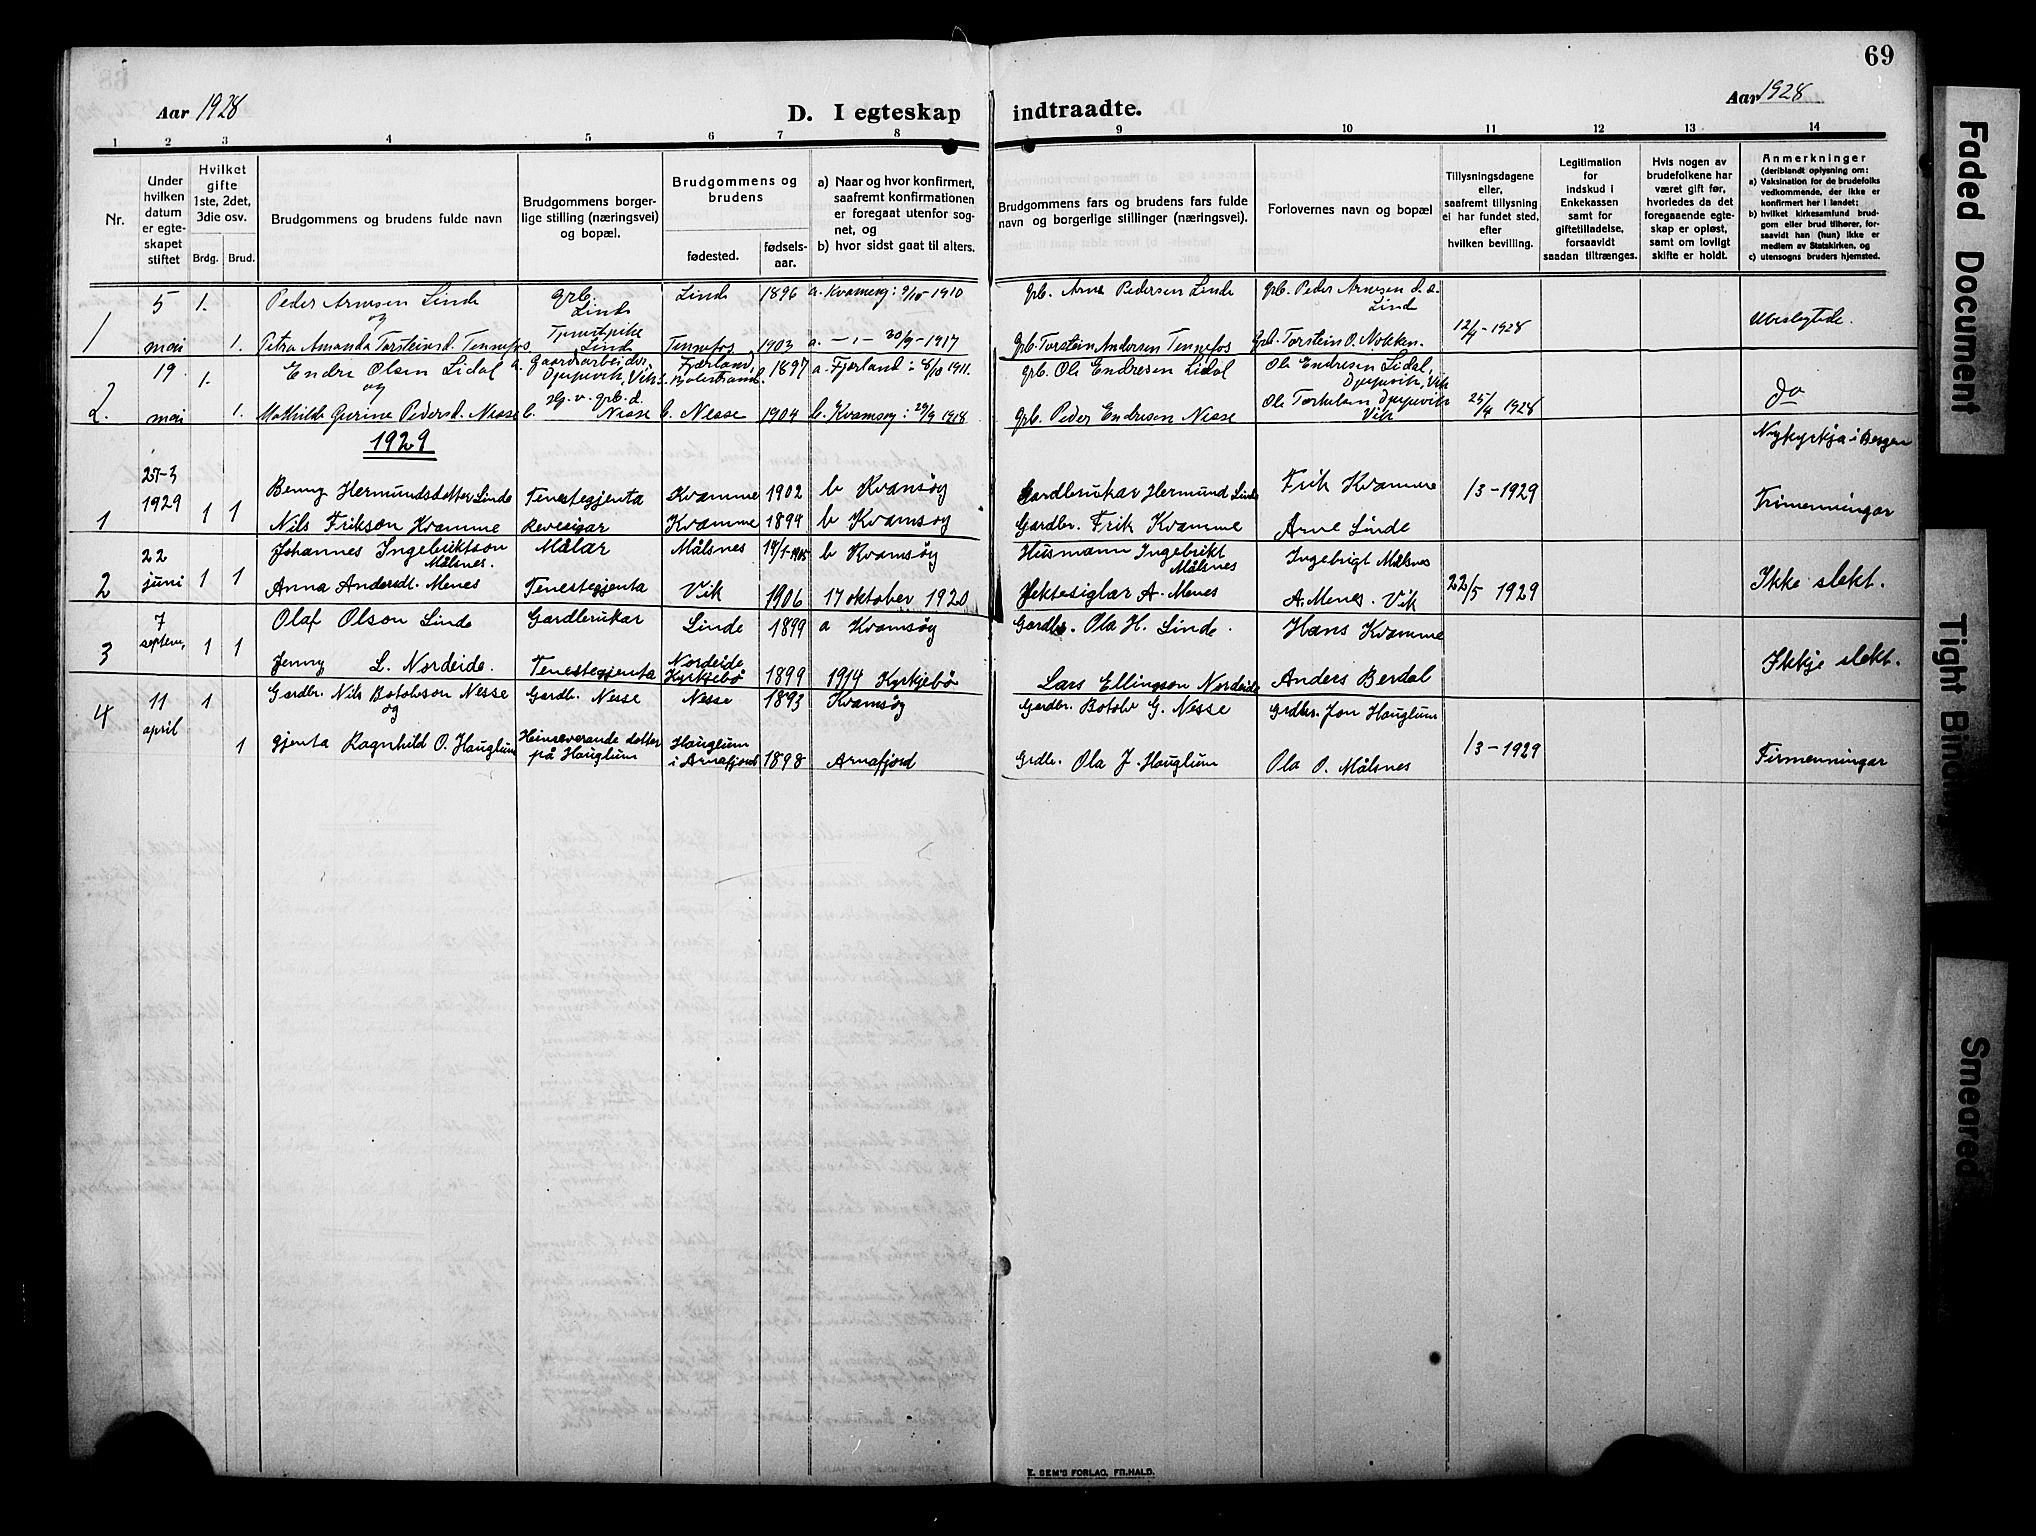 69
Aar 1928
D. I egteskap indtraadte.
Aar 1928
1 2 3 4 5 6 7 8 9 10 11 12 13 14
Nr.
Under hvilken datum er egteskapet stiftet
Hvilket gifte 1ste, 2det, 3die osv.
Brdg. Brud.
Brudgommens og brudens fulde navn
Brudgommens borgerlige stilling (næringsvei) og bopæl.
Brudgommens og brudens
fødested. fødselsaar.
a) Naar og hvor konfirmert, saafremt konfirmationen er foregaat utenfor sognet, og
b) hvor sidst gaat til alters.
Brudgommens fars og brudens fars fulde navn og borgerlige stillinger (næringsvei).
Forlovernes navn og bopæl
Tillysningsdagene eller, saafremt tillysning ei har fundet sted, efter hvilken bevilling.
Legitimation for indskud i Enkekassen samt for giftetilladelse, forsaavidt saadan tiltrænges.
Hvis nogen av brudefolkene har været gift før, hvorledes da det foregaaende egteskap er opløst, samt om lovligt skifte er holdt.
Anmerkninger
(deriblandt oplysning om:
a) Vaksination for de brudefolks vedkommende, der ikke er konfirmert her i landet;
b) hvilket kirkesamfund brudgom eller brud tilhører, forsaavidt han (hun) ikke er medlem av Statskirken, og
c) utensogns bruders hjemsted.
5 1. Peder Arnesen Linde grb. Linde Linde 1896 a. Kvamsøy: 9/10 1910 grb. Arne Pedersen Linde grb. Peder Arnesen d.e. Linde
1 og
mai 1. Petra Amanda Torsteinsd. Tennefos Tjenestpike Linde Tennefos 1903 a. — " — 30/9 - 1917 grb. Torstein Andersen Tennefos grb. Torstein O. Nokken. 12/4 - 1928 Ubeslegtede.
19 1. Endre Olsen Lidal a. gaardsarbeider, Djupevik, Vik Fjærland, Balestrand. 1897 a. Fjærland: 8/10 1911. grb. Ole Endresen Lidal Ole Endresen Lidal, Djupevik, Vik
2. og
mai 1. Mathilde Gurine Pedersd. Nesse b. Hj. v. grb. d. Nesse b. Nesse 1904 b. Kvamsøy: 29/9 1918 grb. Peder Endresen Nesse Ole Torkelsen Djupevik Vik 25/4 1928 do
1929
Nykyrkja i Bergen
27-3 1929
Benny Hermundsdotter Linde Tenestegjenta Kvamme 1902 b Kvamsøy Gardbrukar Hermund Linde Frik Kvamme 1/3 - 1929 Trimenningar
1 1 1 Nils Frikson Kvamme Revesigar Kvamme 1899 b Kvamsøy Gardbr. Frik Kvamme Arne Linde
22 Johannes Ingebriktson Målsnes. Målar Målsnes 14/1-1905 b Kvamsøy Husmann Ingebrikt Målsnes Ingebrigt Målsnes
2 juni 1 1 Anna Andersdt. Menes Tenestegjenta Vik 1906 17 oktober 1920 Jektesiglar A. Menes A. Menes. Vik 22/5 1929 Ikke slekt.
7 septem. Olaf Olson Linde Gardbrukar Linde 1899 a Kvamsøy Gardbr. Ola H. Linde. Hans Kvamme
3 1 1 Jenny L. Nordeide. Tenestegjenta Nordeide Kyrkjebø 1899 1914 Kyrkjebø Lars Ellingson Nordeide Anders Berdal Ikkje slekt.
4 11 april 1 Gardbr. Nils Botolvson Nesse Gardb. Nesse Nesse 1893 Kvamsøy Gardbr. Botolv G. Nesse Grdbr. Jon Hauglum
og
1 gjenta Ragnhild O. Hauglum Heimeverande dotter på Hauglum Hauglum i Arnafjord 1898 Arnafjord Grdbr. Ola J. Hauglum Ola O. Målsnes 1/3 - 1929 Firmenningar
E. SEM'S FORLAG, FR.HALD.
Faded Document
Tight Binding
Smeared